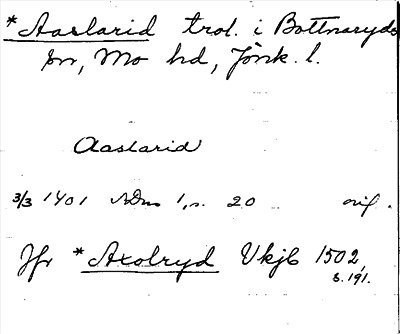 *Aaslarid trol. i Bottnaryds
sn, Mo hd, Jönk. l.
Aaslarid
3/3 1401 SDns 1, s. 20 orig.
Jfr *Axolryd Vkjb 1502,
s. 191.